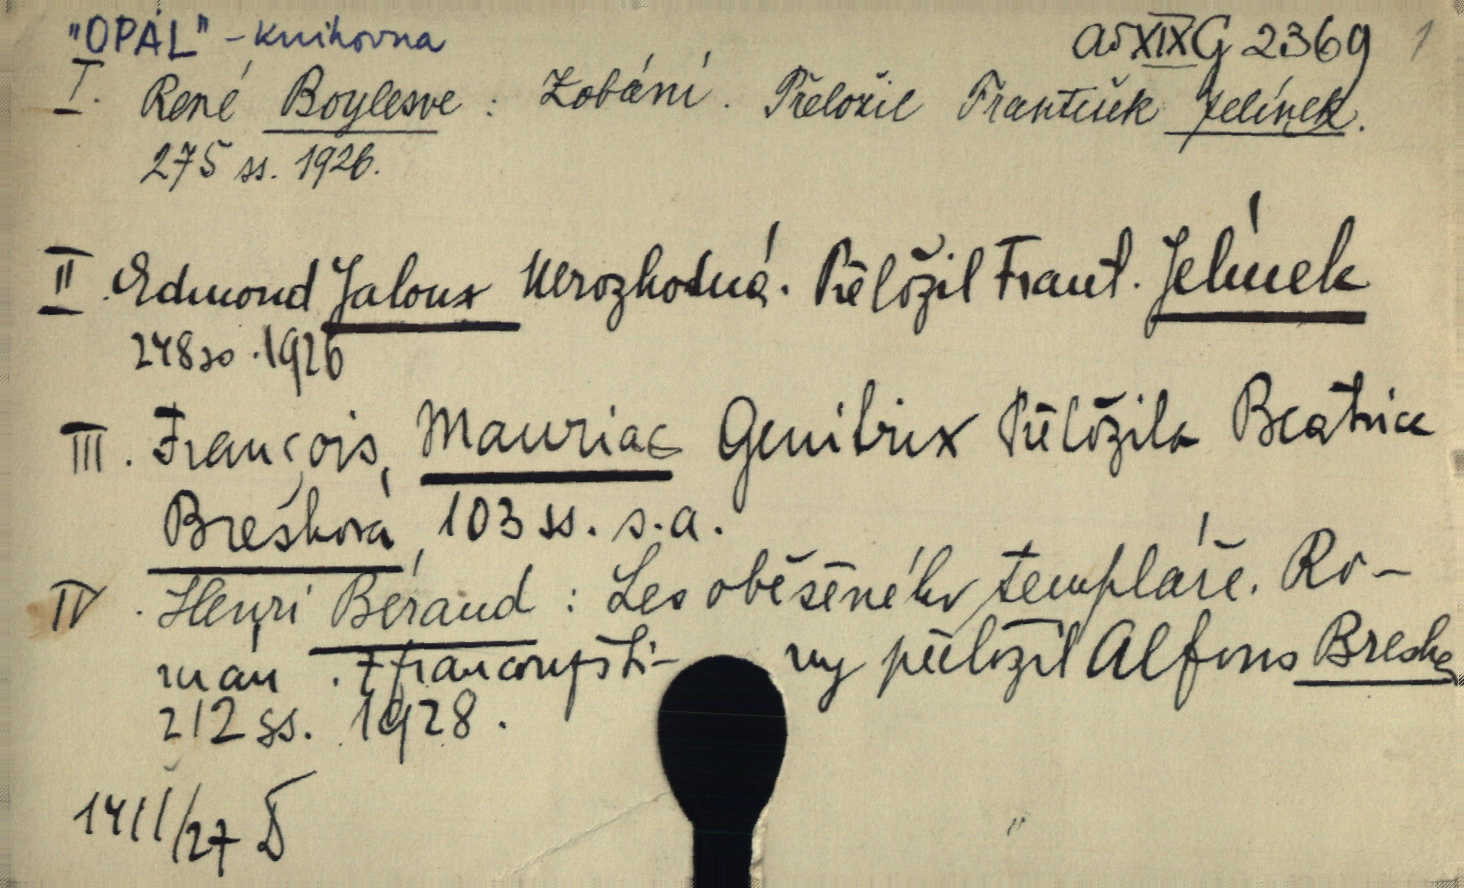 "OPÁL" - Knihovna ad XIX G 2369 1
I. René Boylesve : Zobání. Přeložil František Jelínek.
275 ss. 1926.
II. Edmond Jaloux Nerozhodná. Přeložil Frant. Jelínek
248 ss. 1926
III. François Mauriac Genitrix Přeložila Beatrice
Brešková 103 ss. s.a.
IV. Henri Béraud : Les oběšeného templáře. Ro-
mán. Z francouzšti- ny přeložil Alfons Breska
212 ss. 1928.